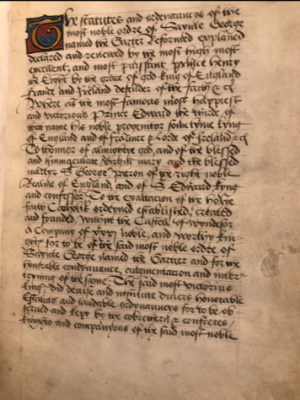 The statutes and ordenaunces of the
most noble ordre of Saynte George
named the Garter Reformed explaned
declared and renewed by the most high most
excellent, and most puissant prince henry
the Eight by the grace of god king of England
France and Ireland defender of the faith &c
the most famous most happiest
and victorious Prince Edward the thirde,
noble progenitor somtyme kyng
of England and of Fraunce & lorde of Ireland &c
To thonnor of almightie god, and of the blessed
and immaculate virgin mary and the blessed
martyr S George patron of the right noble
Realme of England, and of S Edward kyng
and confessor To the exaltation of the holye
faith ordened established, created
and founded within the Castell of wyndesor
A Company of xxvj noble, and worthy
for to be of the said most noble ordre of
Saynte George named the Garter and for the
honorable continuance, augmentation and
of the same The said most victorius
king, did devise and institute divers honorable
Estatutes and laudable ordenaunces for to be ob
served and kept by the
and companyons of the said most noble